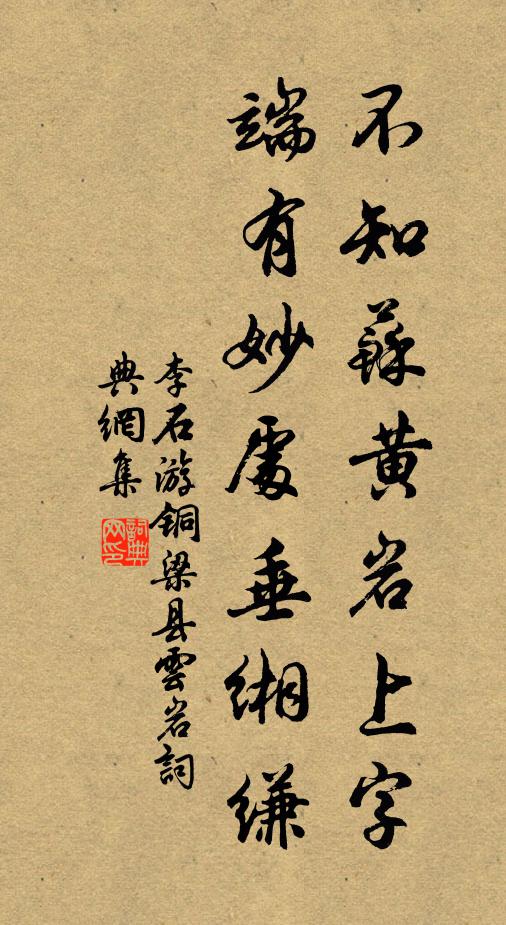 不知蘇黄岩上字
端有妙處垂緗縑
李石游铜梁县雲岩詞
典網集
詞典网印